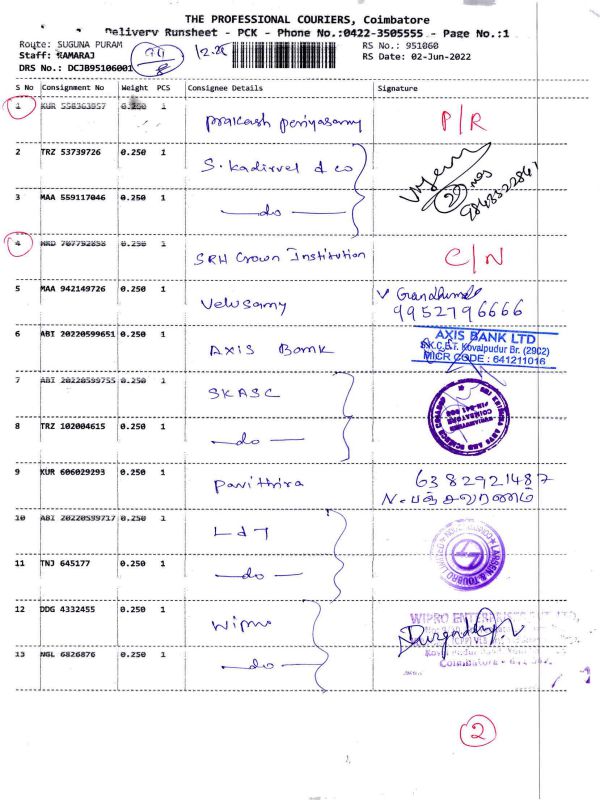 THE PROFESSIONAL COURIERS, Coimbatore
Delivery Runsheet - PCK - Phone No.:0422-3505555 - Page No.:1
Route: SUGUNA PURAM
RS No.: 951060
Staff: RAMARAJ
RS Date: 02-Jun-2022
DRS No.: DCJB95106001
S No Consignment No Weight PCS Consignee Details Signature
1 KUR 558363857 0.250 1 Prakash Periyasamy P/R
2 TRZ 53739726 0.250 1 S. Kadirvel & co
3 MAA 559117046 0.250 1 —do—
4 HRD 707792858 0.250 1 SRH Crown Institution C/N
5 MAA 942149726 0.250 1 Velusamy
9952796666
6 ABI 20220599651 0.250 1 Axis Bank
AXIS BANK LTD
S.K.C.E.T. Kovaipudur Br. (2902)
MICR CODE : 641211016
7 ABI 20220599755 0.250 1 SKASC
8 TRZ 102004615 0.250 1 —do—
9 KUR 606029293 0.250 1 Pavithira 6382921487
N. பஞ்சவரணம்
10 ABI 20220599717 0.250 1 L&T
LARSEN & TOUBRO LIMITED
11 TNJ 645177 0.250 1 —do—
12 DDG 4332455 0.250 1 Wipro
WIPRO ENTERPRISES PVT. LTD,
13 NGL 6826876 0.250 1 —do—
Coimbatore - 641 042
2